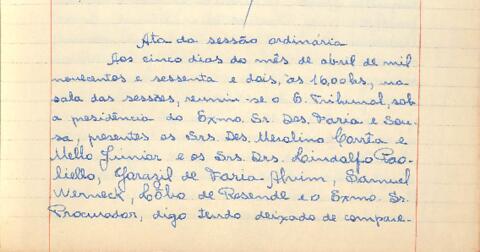 Ata da sessão ordinária
Aos cinco dias do mês de abril de mil
novecentos e sessenta e dois, às 16,00hs, na
sala das sessões, reuniu-se o E. Tribunal, sob
a presidência do Exmo. Sr. Des. Faria e Sou-
sa, presentes os Srs. Des. Merolino Corrêa e
Mello Júnior e os Srs. Drs. Lindolfo Pao-
liello, Yarazil de Faria Alvim, Samuel
Werneck, Lôbo de Resende e o Exmo. Sr.
Procurador, digo tendo deixado de compare-